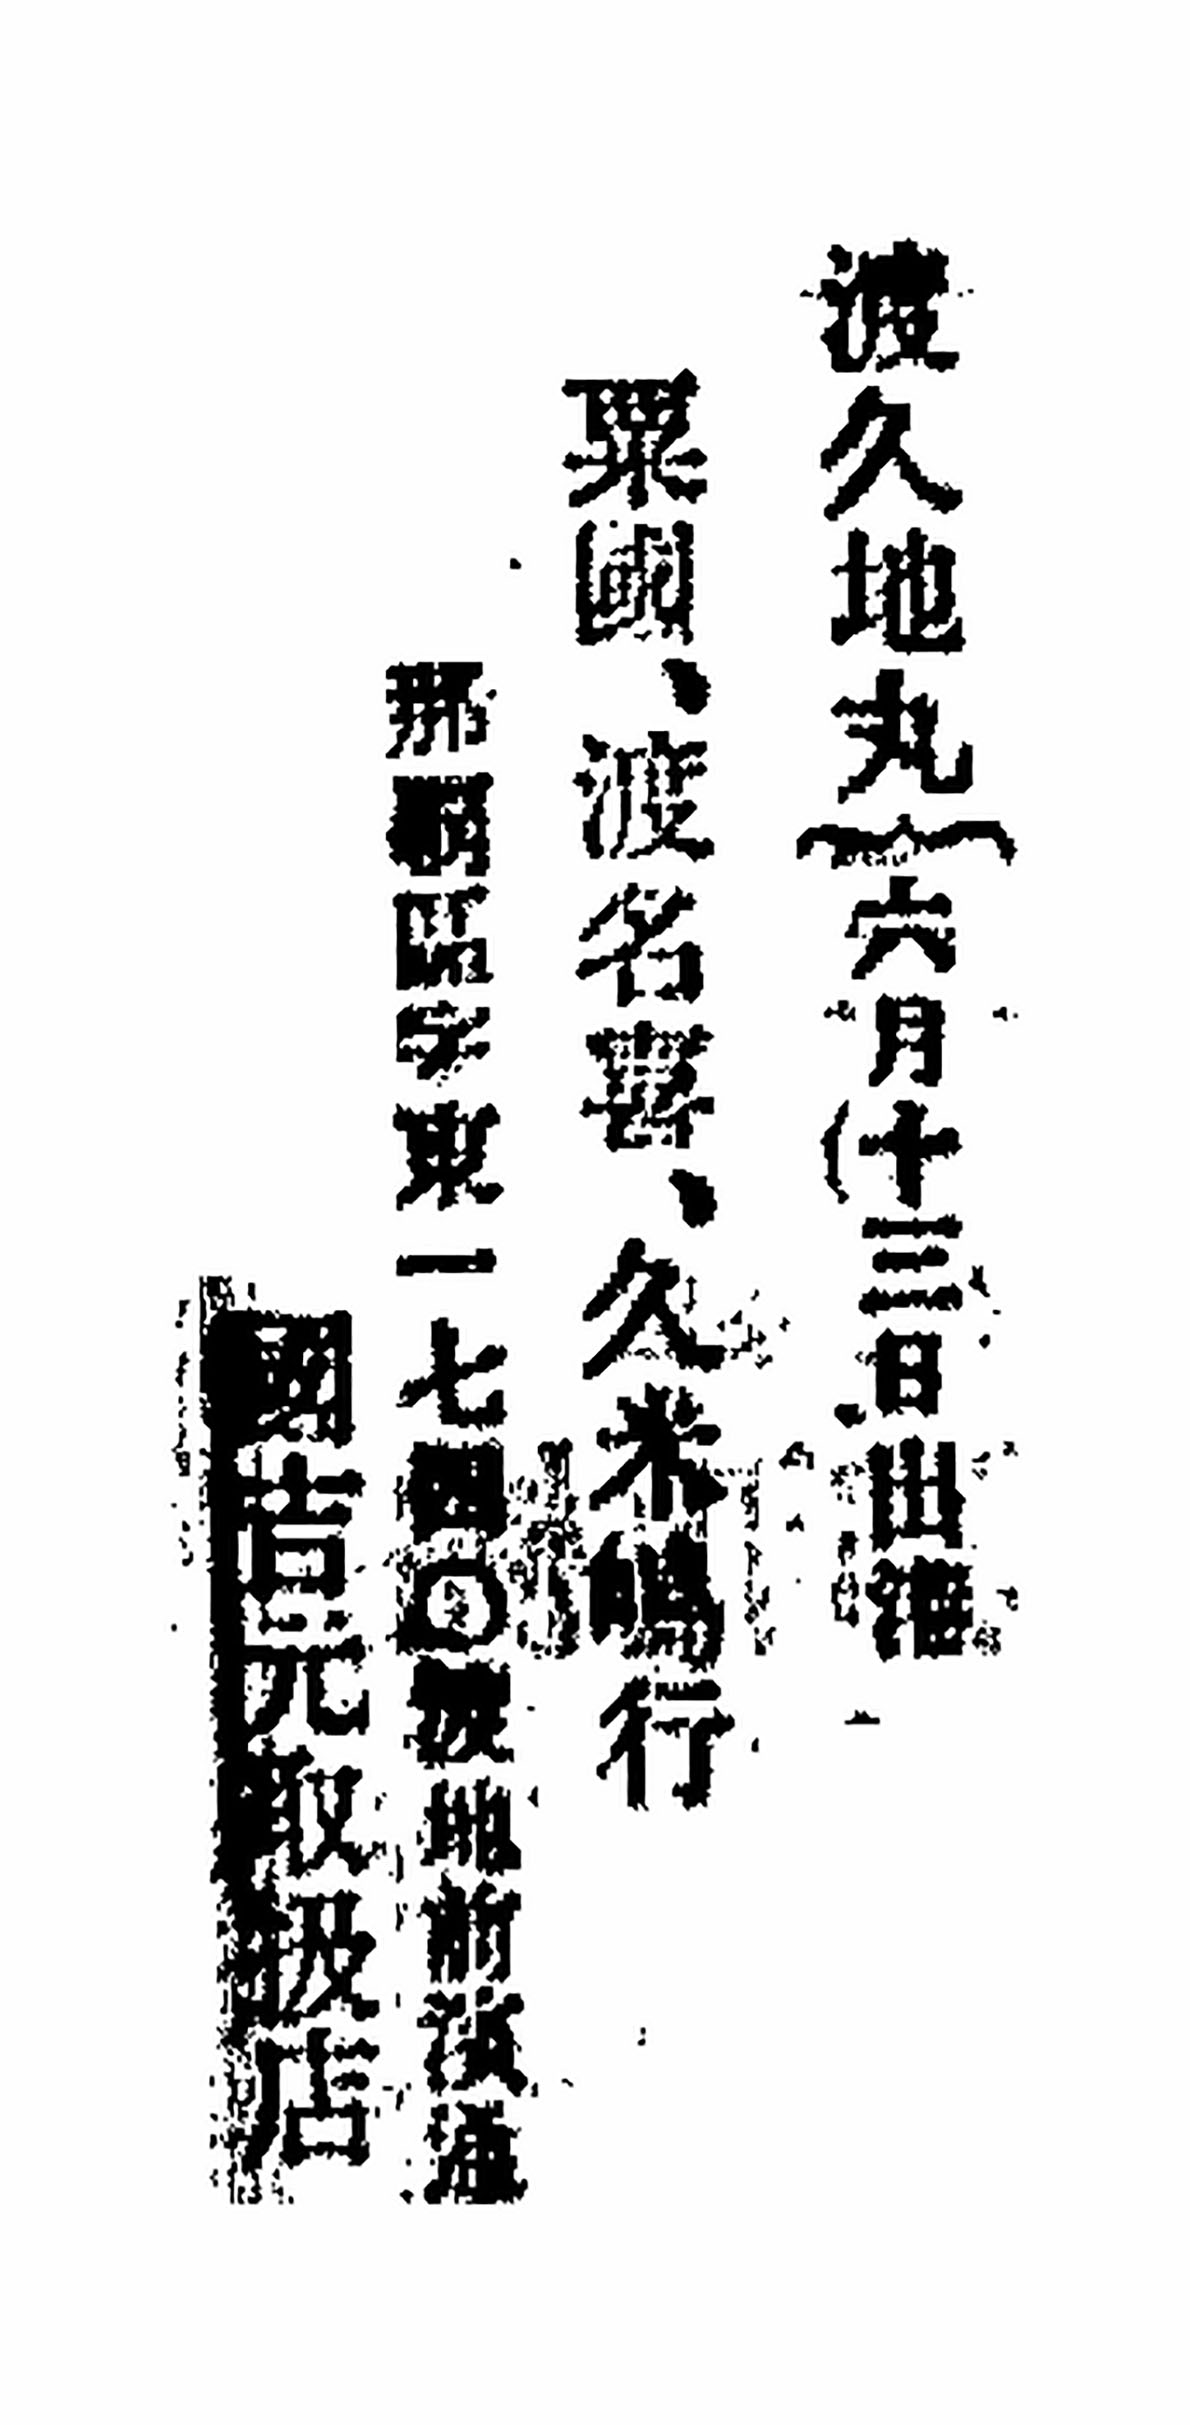 渡久地丸︷六月十三日出港
粟國、渡名喜、久米嶋行
那覇區字東一七四〇渡地前濱通
國吉元取扱店